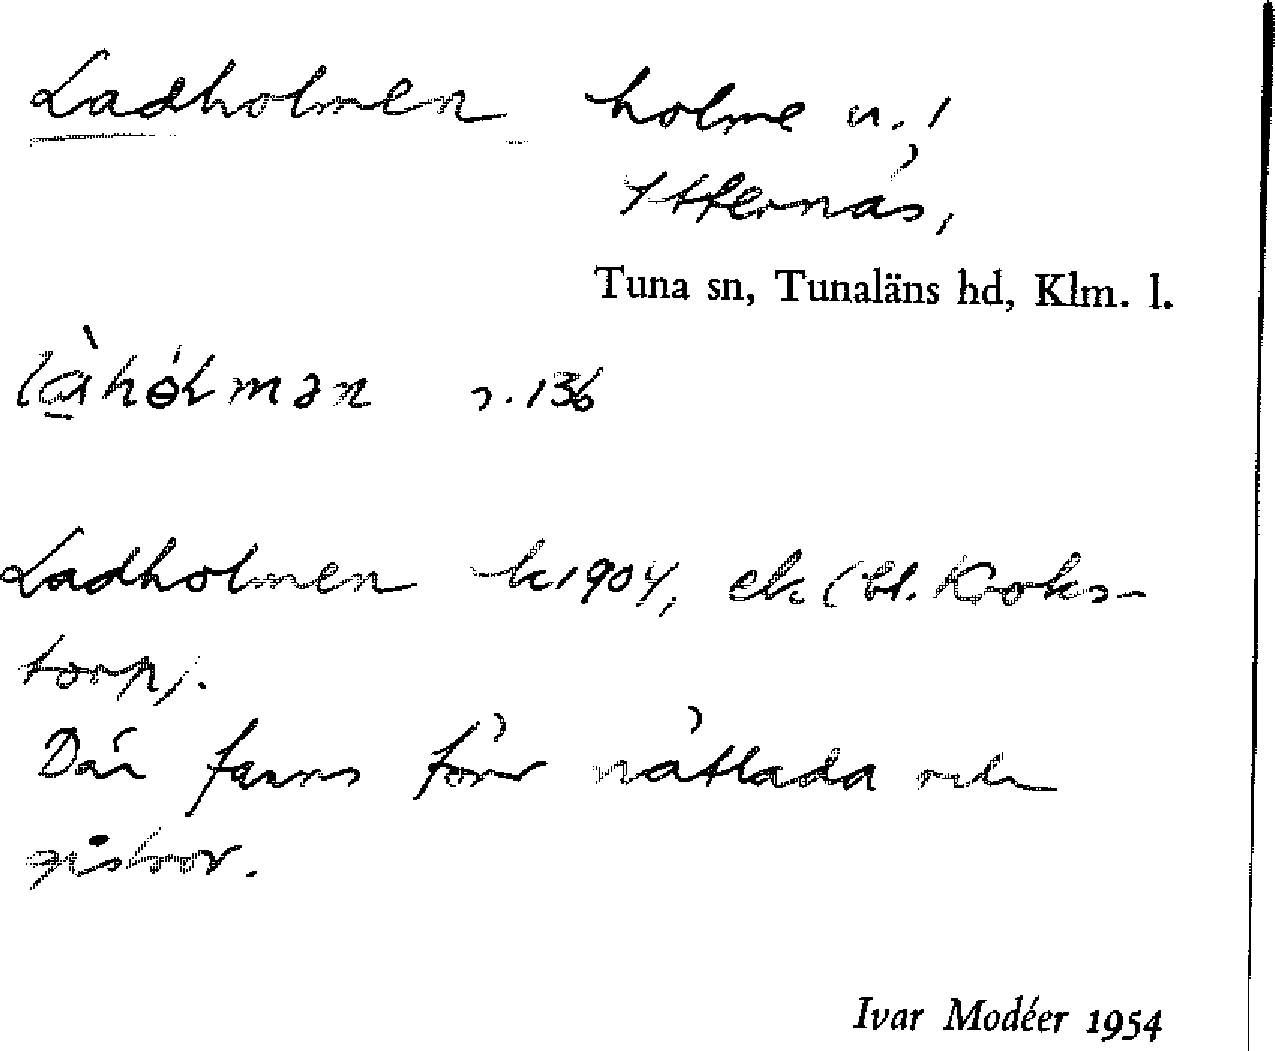 Ladholmen holme u.,
Ytternäs,
Tuna sn, Tunaläns hd, Klm. l.
s. 136
Ladholmen k 1904, ek (bl. Kroks-
torp).
Där fanns förr nätlada och
gistvor.
Ivar Modéer 1954